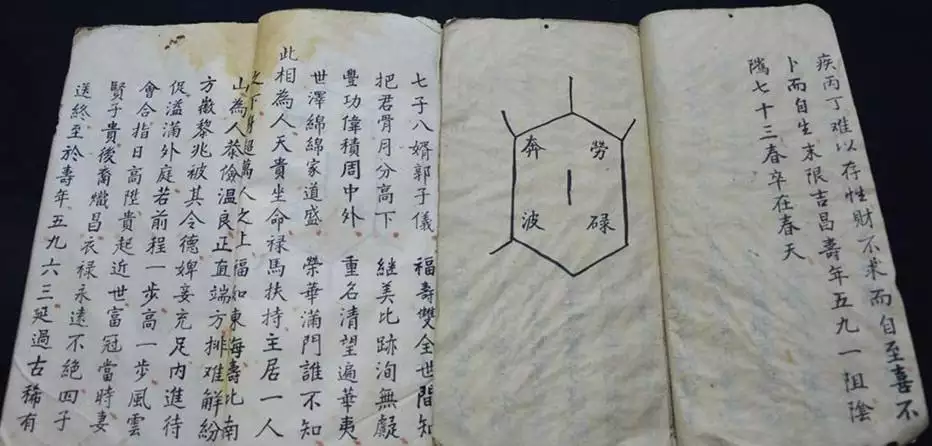 疾丙丁難以存性財不求而自至喜不
卜而自生末限吉昌壽年五九一阻陰
隲七十三春卒在春天
勞碌
奔波
七子八婿郭子儀 福壽雙全世間知
把君骨月分高下 繼美比跡洵無
豐功偉積周中外 重名清望遍華夷
世澤綿綿家道盛 榮華滿門誰不知
此相為人天貴坐命禄馬扶持主居一人
之下身超萬人之上福如東海壽比南
山為人恭儉溫良正直端方排難解紛
方徽黎兆被其令德婢妾充足內進待
促溢滿外庭若前程一步高一步風雲
會合指日高陞貴起近世富冠當時妻
賢子貴後裔熾昌衣禄永遠不絕四子
送終至於壽年五九六三延過古稀有